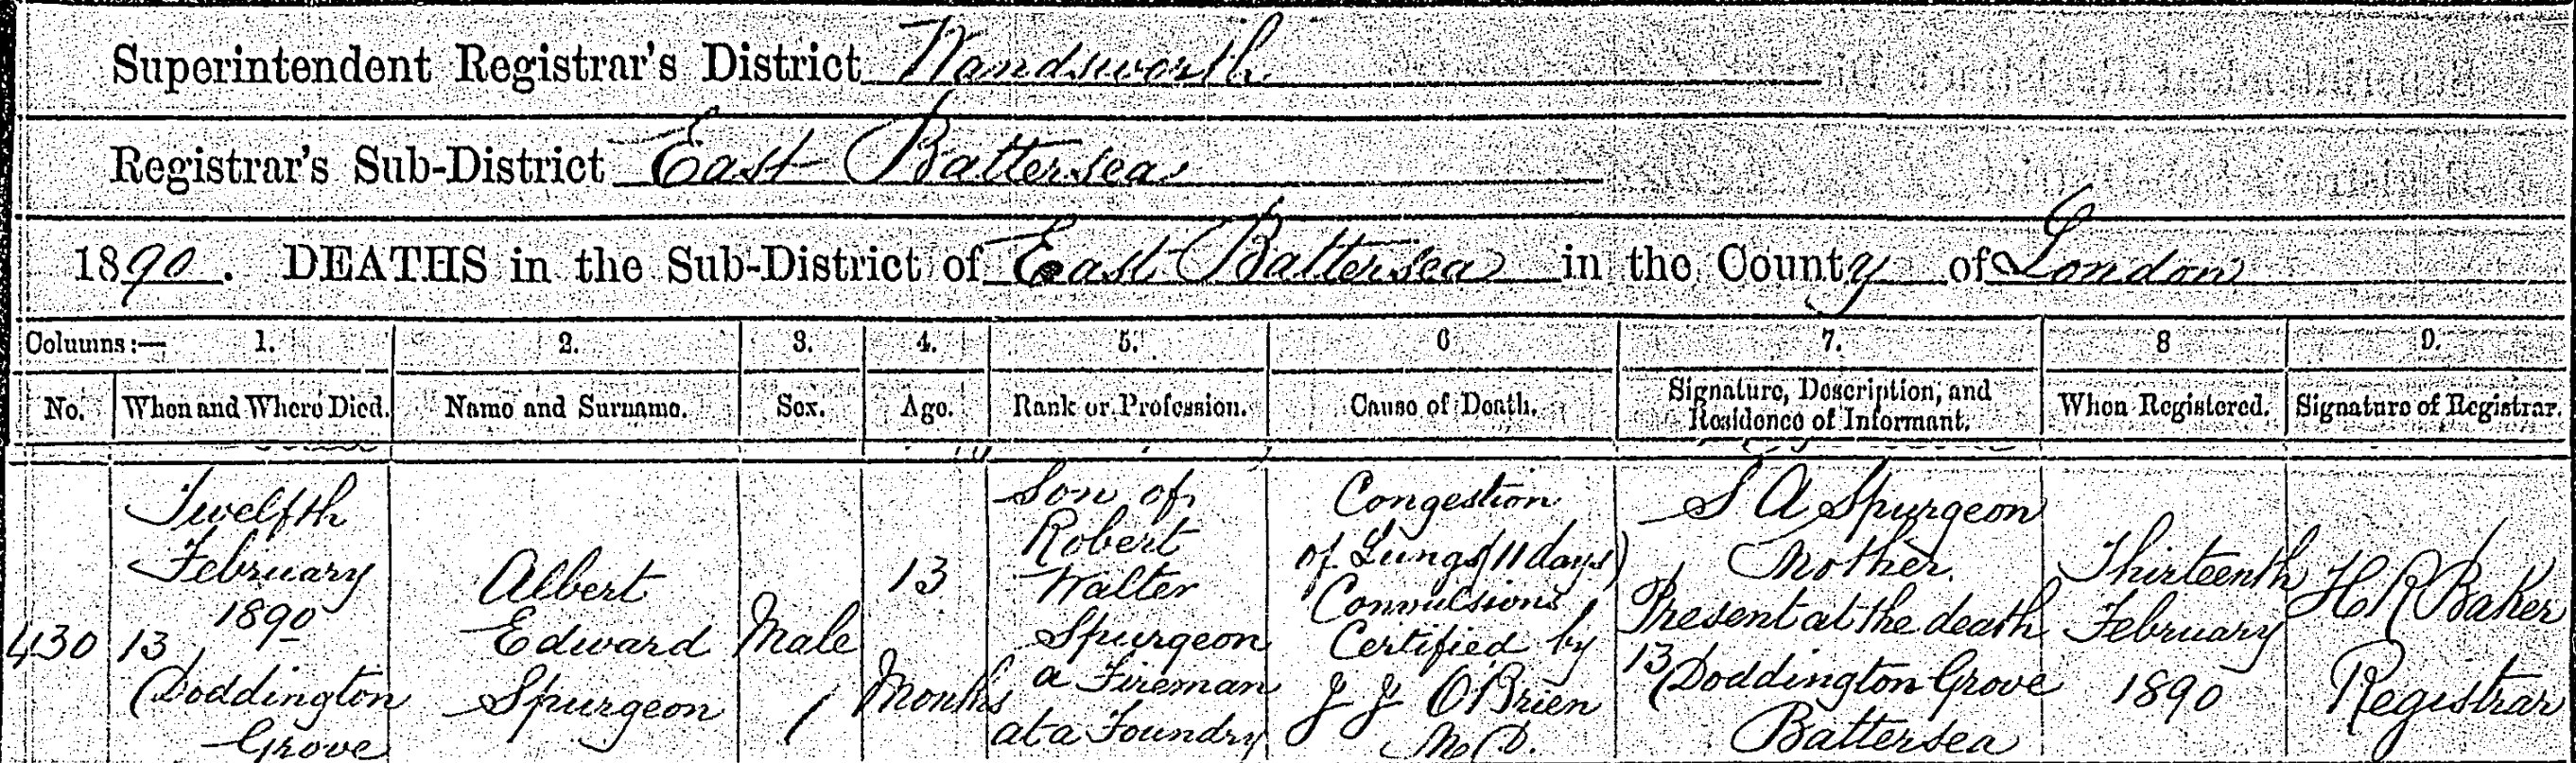 Superintendent Registrar's District Wandsworth
Registrar's Sub-District East Battersea
1890. DEATHS in the Sub-District of East Battersea in the County of London
Columns:— 1. 2. 3. 4. 5. 6 7. 8 9.
No. When and Where Died. Name and Surname. Sex. Age. Rank or Profession. Cause of Death. Signature, Description, and Residence of Informant. When Registered. Signature of Registrar.
430
Twelfth
February
1890
13
Doddington
Grove
Albert
Edward
Spurgeon
Male
13
Months
Son of
Robert
Walter
Spurgeon
a Fireman
at a Foundry
Congestion
of Lungs (11 days)
Convulsions
Certified by
J J O'Brien
M D.
S A Spurgeon
Mother.
Present at the death
13 Doddington Grove
Battersea
Thirteenth
February
1890
H R Baker
Registrar